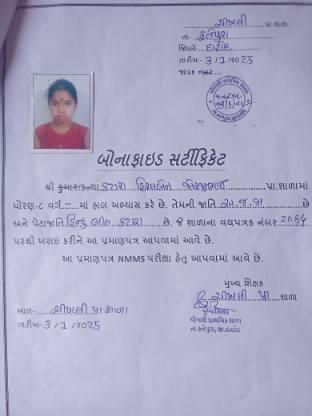 ચીખલી પ્રા.શાળા,
તા. ફતેપુરા
જિલ્લો: દાહોદ
તારીખ:- 3/1/2025
જાવક નંબર
બોનાફાઇડ સર્ટીફિકેટ
શ્રી કુમાર/કન્યા કટારા પ્રા.શાળામાં
ધોરણ-૮ વર્ગ - માં હાલ અભ્યાસ કરે છે. તેમની જાતિ અ.જ.જા છે
અને પેટાજાતિ હિન્દુ ભીલ કટારા છે. જે શાળાના વયપત્રક નંબર
પરથી ખરાઇ કરીને આ પ્રમાણપત્ર આપવામાં આવે છે.
આ પ્રમાણપત્ર NMMS પરીક્ષા હેતુ આપવામાં આવે છે.
મુખ્ય શિક્ષક
ચીખલી પ્રા શાળા
સ્થળ:- ચીખલી પ્રા શાળા
તારીખ:- 3/1/2025
ચીખલી પ્રાથમિક શાળા
તા.ફતેપુરા, જી.દાહોદ